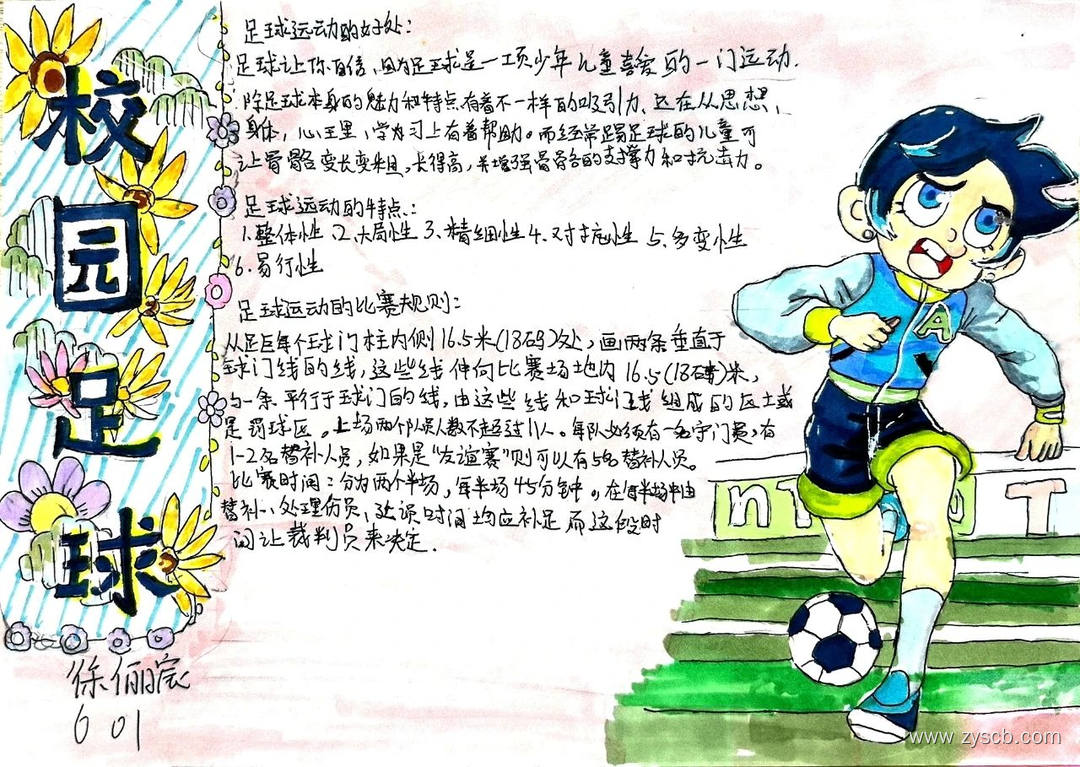 校园足球
足球运动的好处:
足球让你自信,因为足球是一项少年儿童喜爱的一门运动.
除足球本身的魅力和特点有着不一样的吸引力,还在从思想、
身体,心理,学习上有着帮助。而经常踢足球的儿童可
让骨骼变长变粗,长得高,并增强骨骼的支撑力和抗击力。
足球运动的特点:
1.整体性 2.大局性 3.精细性 4.对抗性 5.多变性
6.易行性
足球运动的比赛规则:
从足巨每个球门柱内侧16.5米(18码)处,画两条垂直于
球门线的线,这些线伸向比赛场地内16.5(18码)米,
的一条平行于球门的线,由这些线和球门线组成的区土或
是罚球区。上场两个队员人数不超过11人。每队必须有一名守门员,有
1-2名替补人员,如果是"友谊赛"则可以有5名替补人员。
比赛时间:分为两个半场,每半场45分钟。在每半场中由
替补、处理伤员,延误时间均应补足而这段时
间让裁判员来决定.
A
T
徐俪宸
601
www.zyscb.com